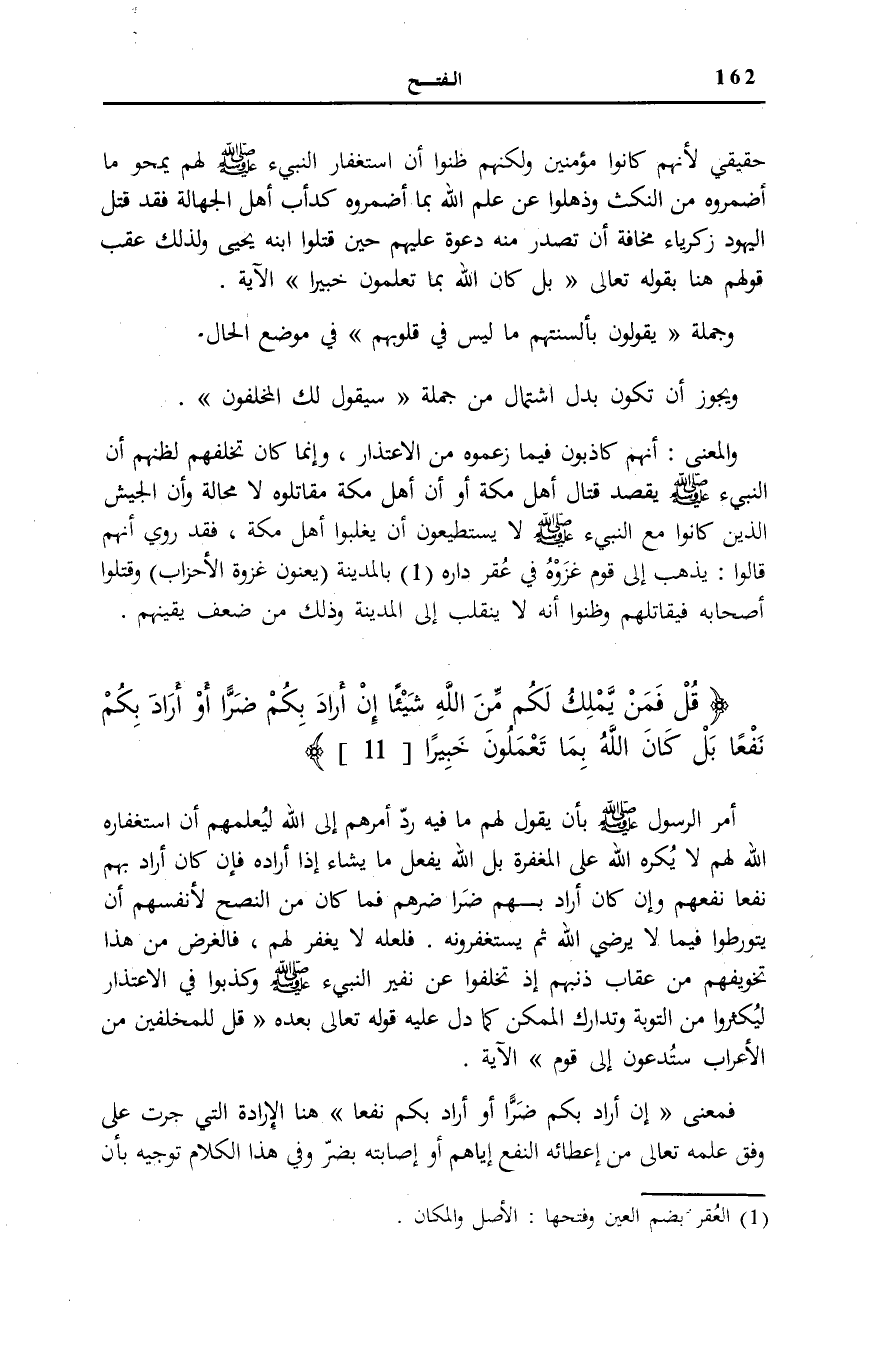 162
الفتـــح
حقيقي لأنهم كانوا مؤمنين ولكنهم ظنوا أن استغفار النبيء ﷺ لهم يمحو ما
أضمروه من النكث وذهلوا عن علم الله بما أضمروه كدأب أهل الجهالة فقد قتل
اليهود زكرياء مخافة أن تصدر منه دعوة عليهم حين قتلوا ابنه يحيى ولذلك عقب
قولهم هنا بقوله تعالى « بل كان الله بما تعلمون خبيرا » الآية .
وجملة « يقولون بألسنتهم ما ليس في قلوبهم » في موضع الحال.
ويجوز أن تكون بدل اشتمال من جملة « سيقول لك المخلفون » .
والمعنى : أنهم كاذبون فيما زعموه من الاعتذار ، وإنما كان تخلفهم لظنهم أن
النبيء ﷺ يقصد قتال أهل مكة أو أن أهل مكة مقاتلوه لا محالة وأن الجيش
الذين كانوا مع النبيء ﷺ لا يستطيعون أن يغلبوا أهل مكة ، فقد روي أنهم
قالوا : يذهب إلى قوم غزَوْهُ في عُقر داره (1) بالمدينة (يعنون غزوة الأحزاب) وقتلوا
أصحابه فيقاتلهم وظنوا أنه لا ينقلب إلى المدينة وذلك من ضعف يقينهم .
﴿ قُلْ فَمَنْ يَّمْلِكُ لَكُم مِّنَ اللَّهِ شَيْئًا إِنْ أَرَادَ بِكُمْ ضَرًّا أَوْ أَرَادَ بِكُمْ
نَفْعًا بَلْ كَانَ اللَّهُ بِمَا تَعْمَلُونَ خَبِيرًا [ 11 ] ﴾
أمر الرسول ﷺ بأن يقول لهم ما فيه ردّ أمرهم إلى الله ليُعلمهم أن استغفاره
الله لهم لا يُكره الله على المغفرة بل الله يفعل ما يشاء إذا أراده فإن كان أراد بهم
نفعا نفعهم وإن كان أراد بـــهم ضَرا ضرهم فما كان من النصح لأنفسهم أن
يتورطوا فيما لا يرضي الله ثم يستغفرونه . فلعله لا يغفر لهم ، فالغرض من هذا
تخويفهم من عقاب ذنبهم إذ تخلفوا عن نفير النبيء ﷺ وكذبوا في الاعتذار
ليُكثروا من التوبة وتدارك الممكن كما دل عليه قوله تعالى بعده « قل للمخلفين من
الأعراب ستُدعون إلى قوم » الآية .
فمعنى « إن أراد بكم ضَرًّا أو أراد بكم نفعا » هنا الإرادة التي جرت على
وفق علمه تعالى من إعطائه النفع إياهم أو إصابته بضرّ وفي هذا الكلام توجيه بأن
(1) العُقر بضم العين وفتحها : الأصل والمكان .